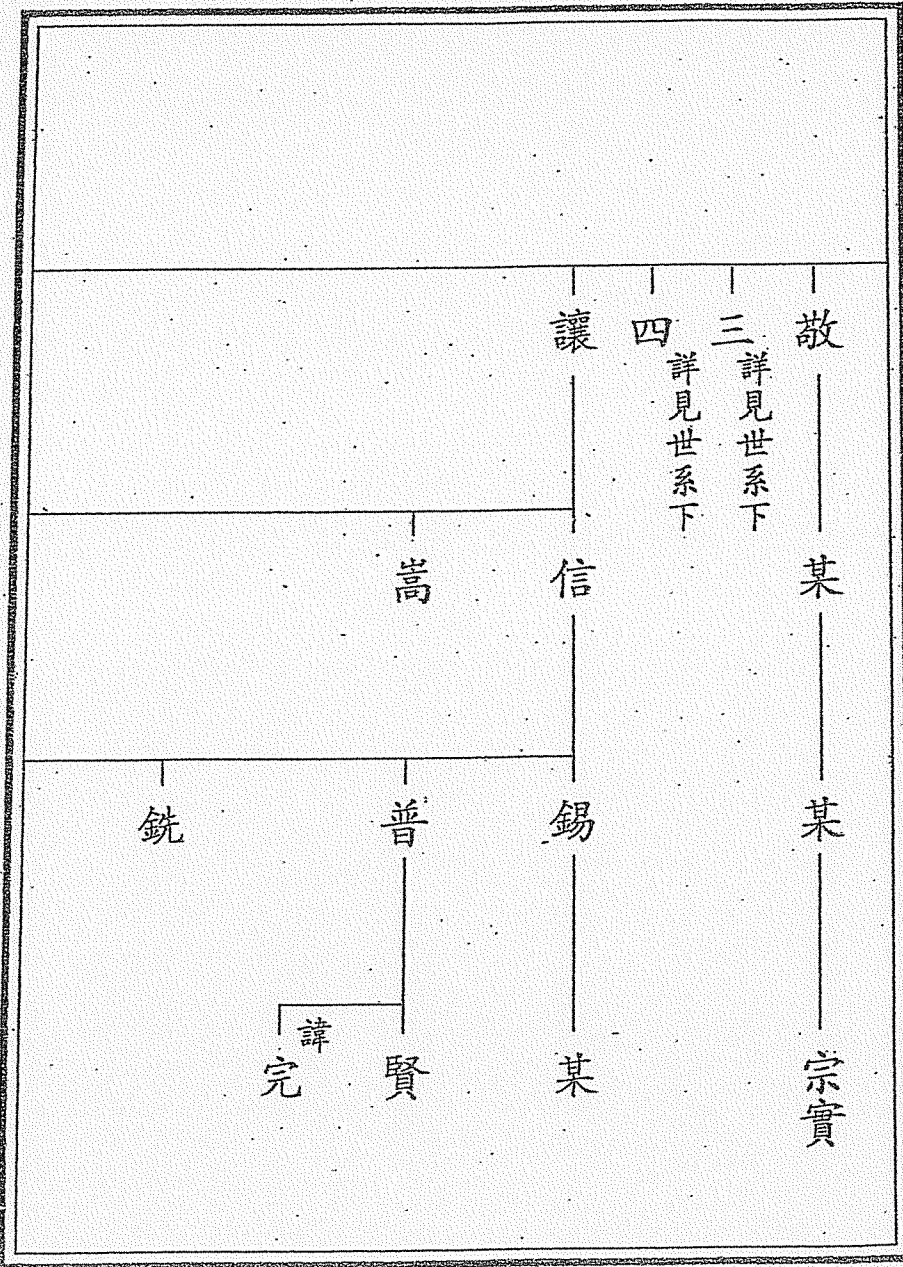 敬
三
詳見世系下
四
詳見世系下
讓
某
信
嵩
某
錫
普
銑
宗實
某
賢
諱
完